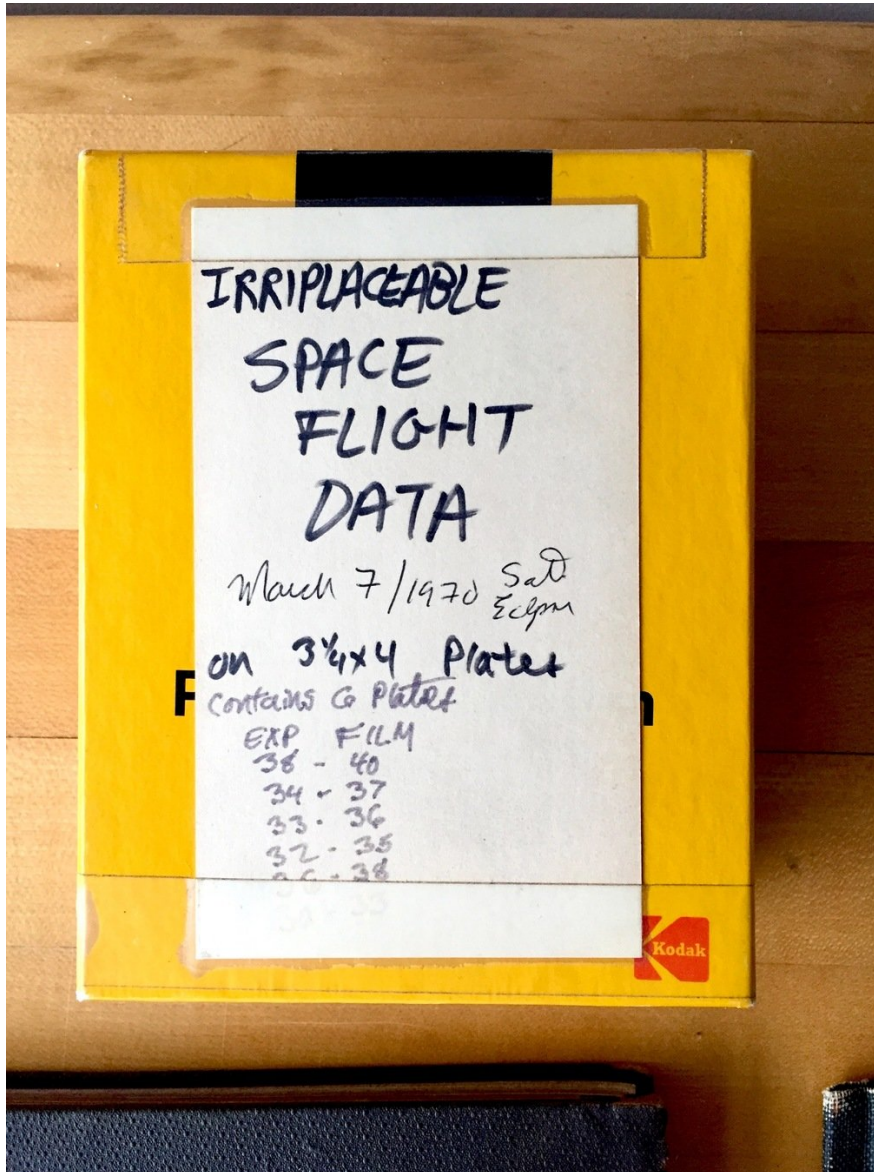 IRRIPLACEABLE
SPACE
FLIGHT
DATA
March 7/1970 Sat
Eclipse
on 3¼x4 Plates
contains 6 Plates
EXP FILM
38 - 40
34 - 37
33 - 36
32 - 35
36 - 38
30 - 33
Kodak